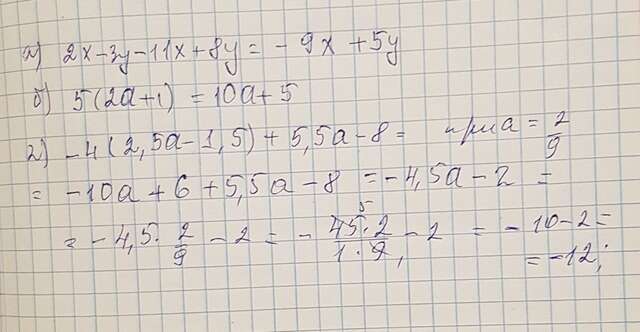 а) 2x-3y-11x+8y = -9x+5y
б) 5(2a+1) = 10a+5
2) -4(2,5a-1,5)+5,5a-8= при a=2/9
= -10a+6+5,5a-8 = -4,5a-2 =
= -4,5·2/9-2 = -45·2/1·9, 5 -2 = -10-2=
= -12;